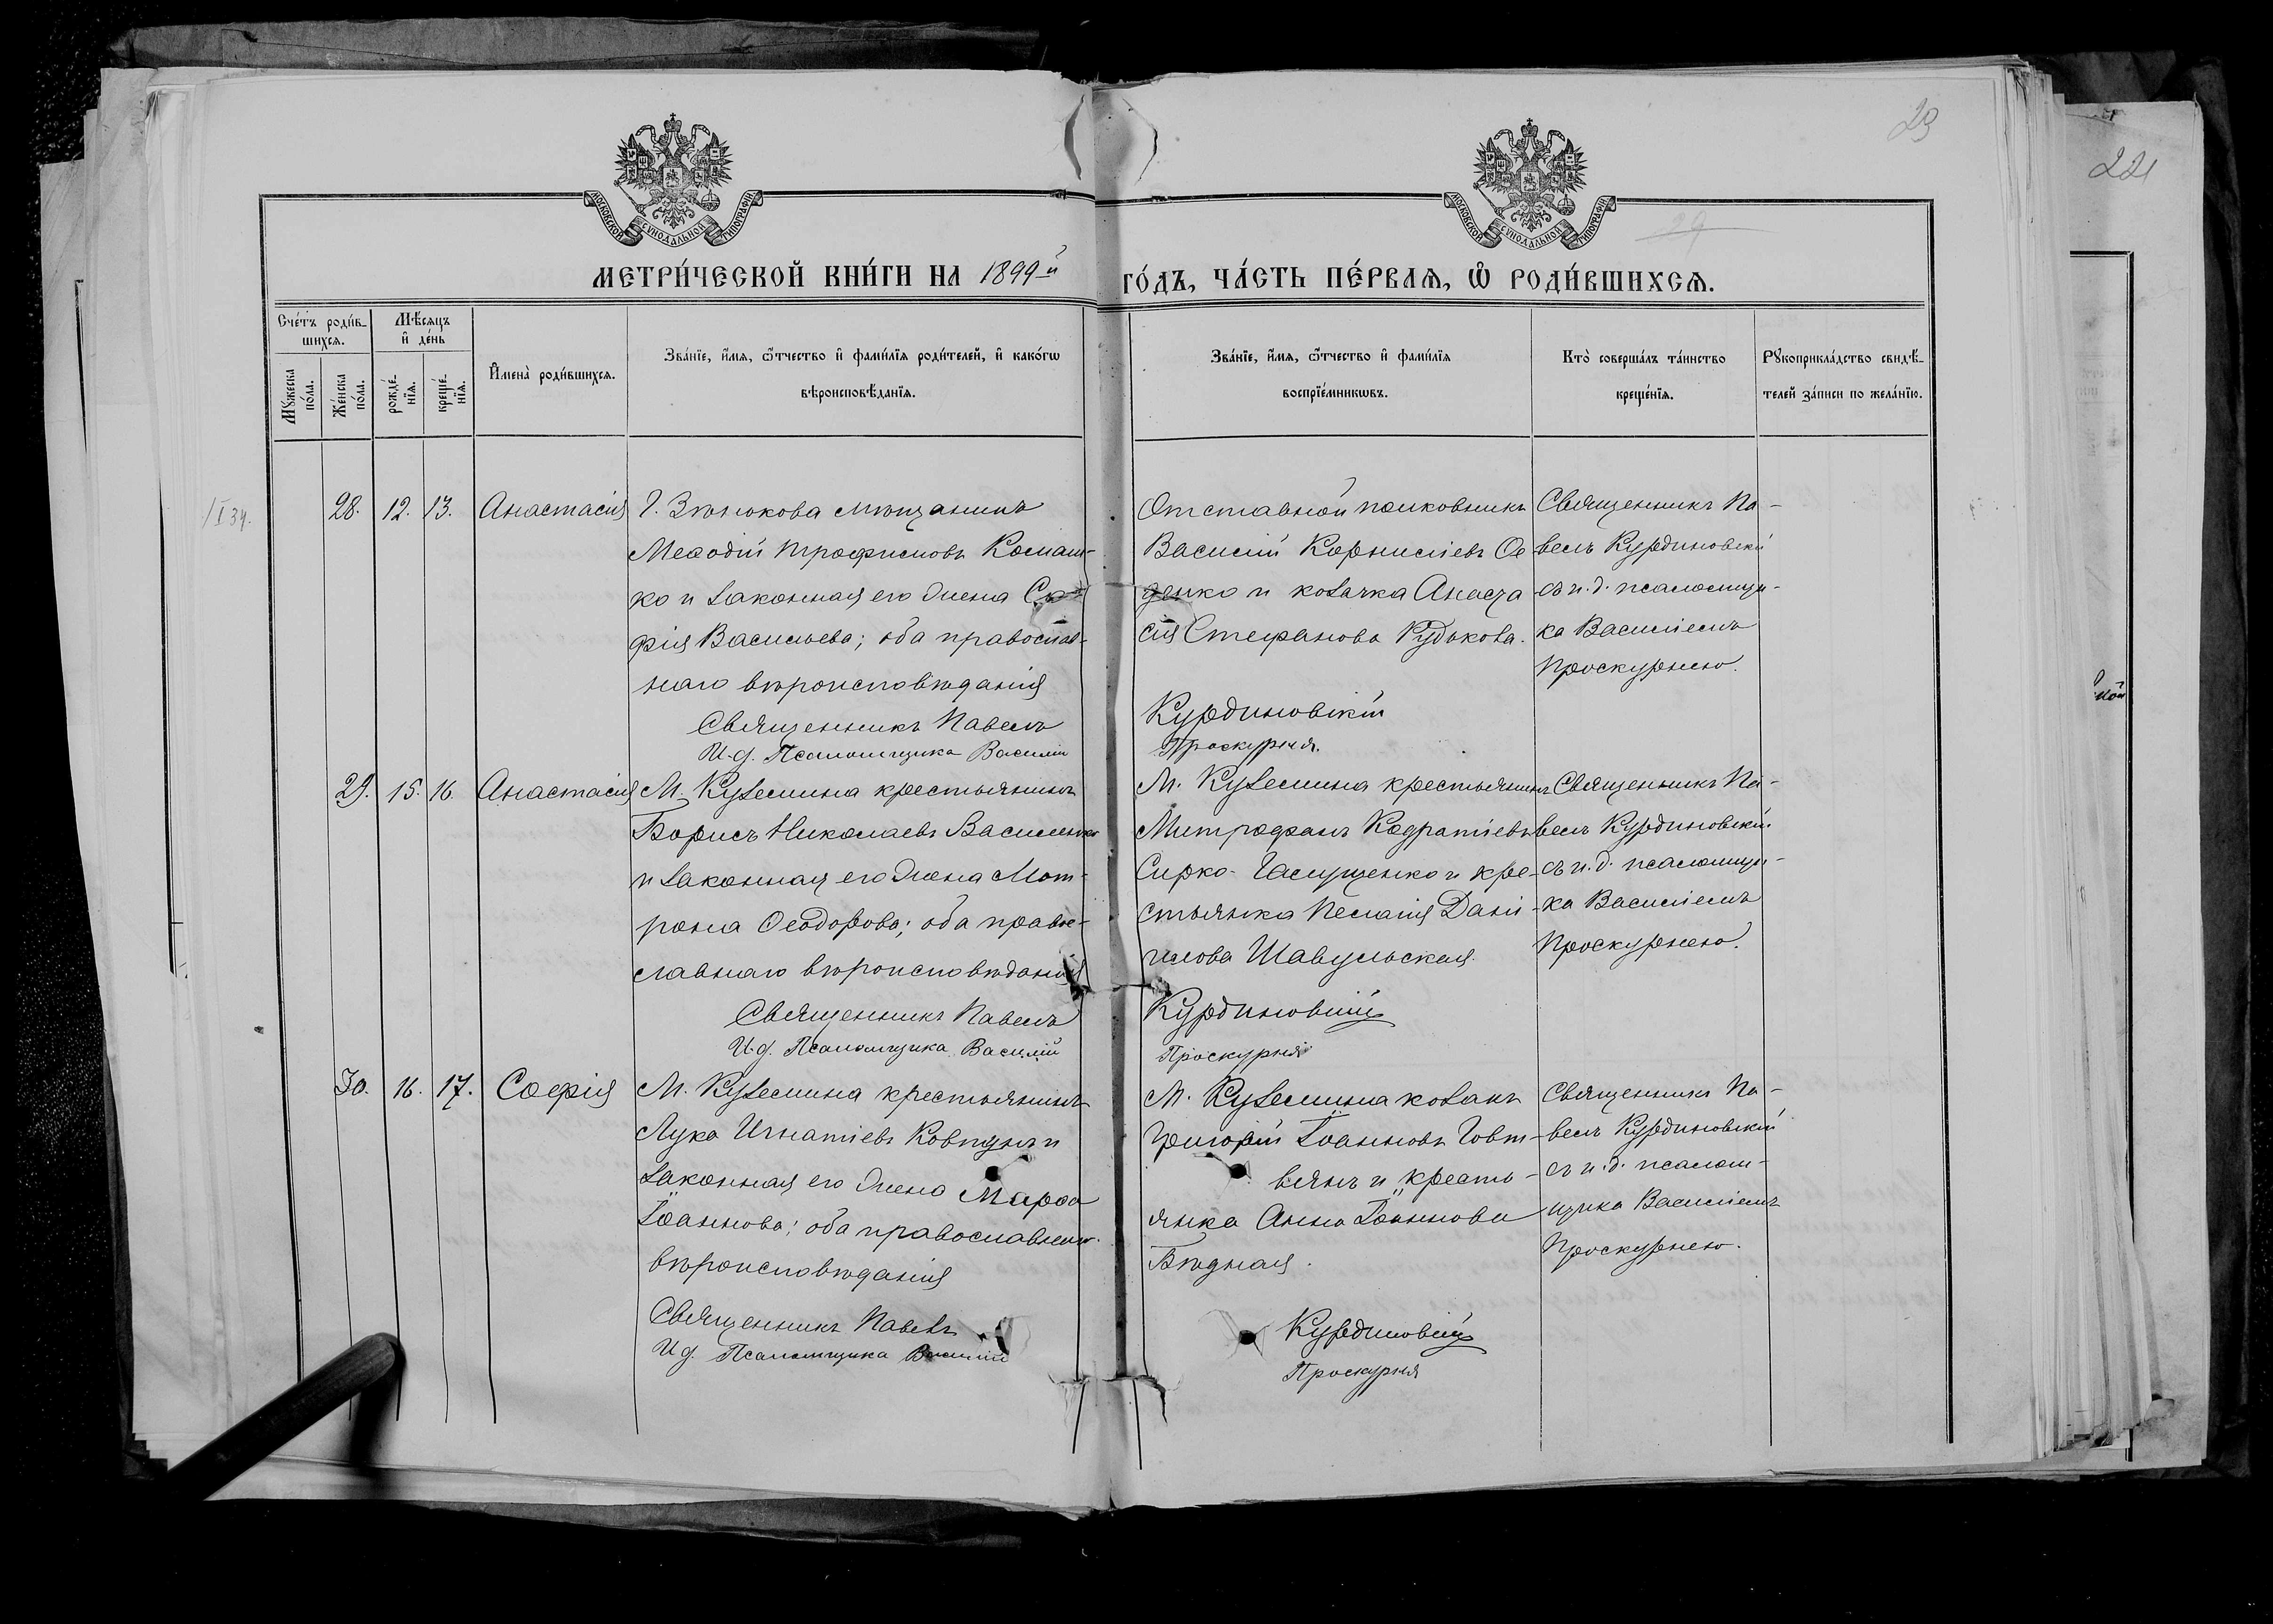 29
221
МОСКОВСКОЙ СѴНОДАЛЬНОЙ ТИПОГРАФІИ
МОСКОВСКОЙ СѴНОДАЛЬНОЙ ТИПОГРАФІИ
МЕТРИ́ЧЕСКОЙ КНИ́ГИ НА 1899-й
ГО́ДЪ, ЧА́СТЬ ПЕ́РВАѦ, Ѡ҆ РОДИ́ВШИХСѦ.
Сче́тъ роди́в-
шихсѧ.
Мѣ́сѧцъ
и҆ де́нь
Мꙋ́жеска по́ла.
Же́нска по́ла.
рожде́-нїѧ.
креще́-нїѧ.
И҆мена̀ роди́вшихсѧ.
Зва́нїе, и҆́мѧ, ѻ҆́тчество и҆ фами́лїѧ роди́телей, и҆ како́гѡ
вѣроисповѣ́данїѧ.
Зва́нїе, и҆́мѧ, ѻ҆́тчество и҆ фами́лїѧ
воспрїе́мникѡвъ.
Кто̀ соверша́лъ та́инство
креще́нїѧ.
Рꙋкоприкла́дство свидѣ́-
телей за́писи по жела́нїю.
28. 12. 13. Анастасія
Г. Зѣнькова мѣщанинъ
Меѳодій Трофимовъ Комаш-
ко и законная его жена Со-
фія Васильева; оба православ-
наго вѣроисповѣданія
Священникъ Павелъ
И.д. Псаломщика Василій
Отставной полковникъ
Василій Корниліевъ Ѳе
денко и козачка Анаста
сія Стефанова Кудыкова.
Курдиновскій
Проскурня.
Священникъ Па-
велъ Курдиновскій
съ и.д. псаломщи-
ка Василіемъ
Проскурнею.
29. 15. 16. Анастасія
М. Куземина крестьянинъ
Борисъ Николаевъ Василенко
и законная его жена Мот-
рона Ѳеодорова; оба право-
славнаго вѣроисповѣданія
Священникъ Павелъ
И.д. Псаломщика Василій
М. Куземина крестьянинъ
Митрофанъ Кодратіевъ
Сирко-Галущенко и кре-
стьянка Пелагія Дані-
илова Шавульская.
Курдиновскій
Проскурня
Священникъ Па-
велъ Курдиновскій
съ и.д. псаломщи-
ка Василіемъ
Проскурнею.
30. 16. 17. Софія
М. Куземина крестьянинъ
Лука Игнатіевъ Ковтунъ и
законная его жена Марѳа
Іоаннова; оба православнаго
вѣроисповѣданія
Священникъ Павелъ
И.д. Псаломщика Василій
М. Куземина козакъ
Григорій Іоанновъ Говт-
вянъ и кресть-
янка Анна Іоаннова
Бѣдная.
Курдиновскій
Проскурня
Священникъ Па-
велъ Курдиновскій
съ и.д. псалом-
щика Василіемъ
Проскурнею.